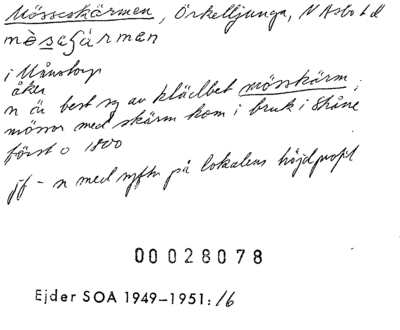 Mössesskärmen, Örkelljunga, N Åsbo hd
mèsesjármen
i Månstorp
åker
n är best sg av klädbet mösskärm;
mössor med skärm kom i bruk i Skåne
först o 1800
jf - n med syftn på lokalens höjdprofil
00028078
Ejder SOA 1949-1951: 16